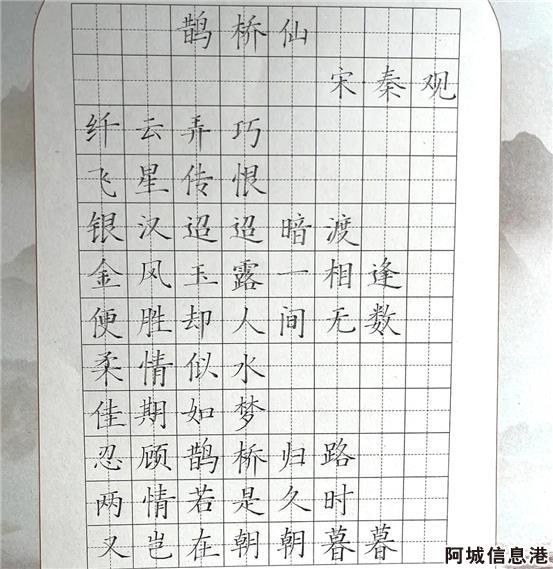 鹊桥仙
宋秦观
纤云弄巧
飞星传恨
银汉迢迢暗渡
金风玉露一相逢
便胜却人间无数
柔情似水
佳期如梦
忍顾鹊桥归路
两情若是久时
又岂在朝朝暮暮
阿城信息港